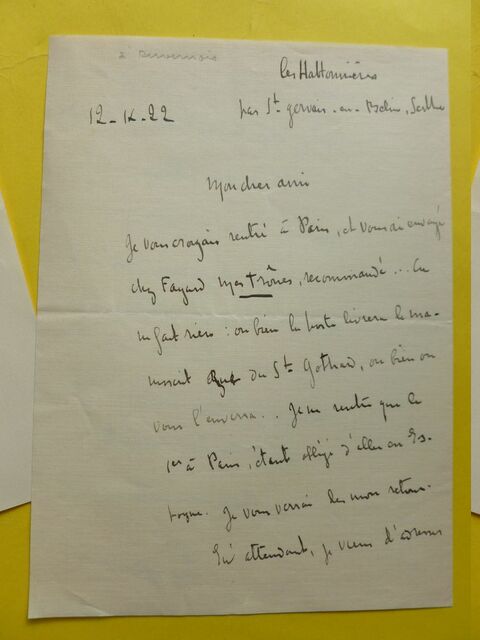 à Duvernois
les Hattonnières
12-IX-22
par St gervais-en-Belin, Sarthe
Mon cher ami
Je vous croyais rentré à Paris, et vous ai envoyé
chez Fayard mes trônes, recommandé... Ca
ne fait rien : ou bien la poste livrera le ma-
nuscrit du St Gothard, ou bien on
vous l'enverra.. Je ne rentre que le
1er à Paris, étant obligé d'aller en Es-
pagne. Je vous verrai dès mon retour.
En attendant, je viens d'adresser